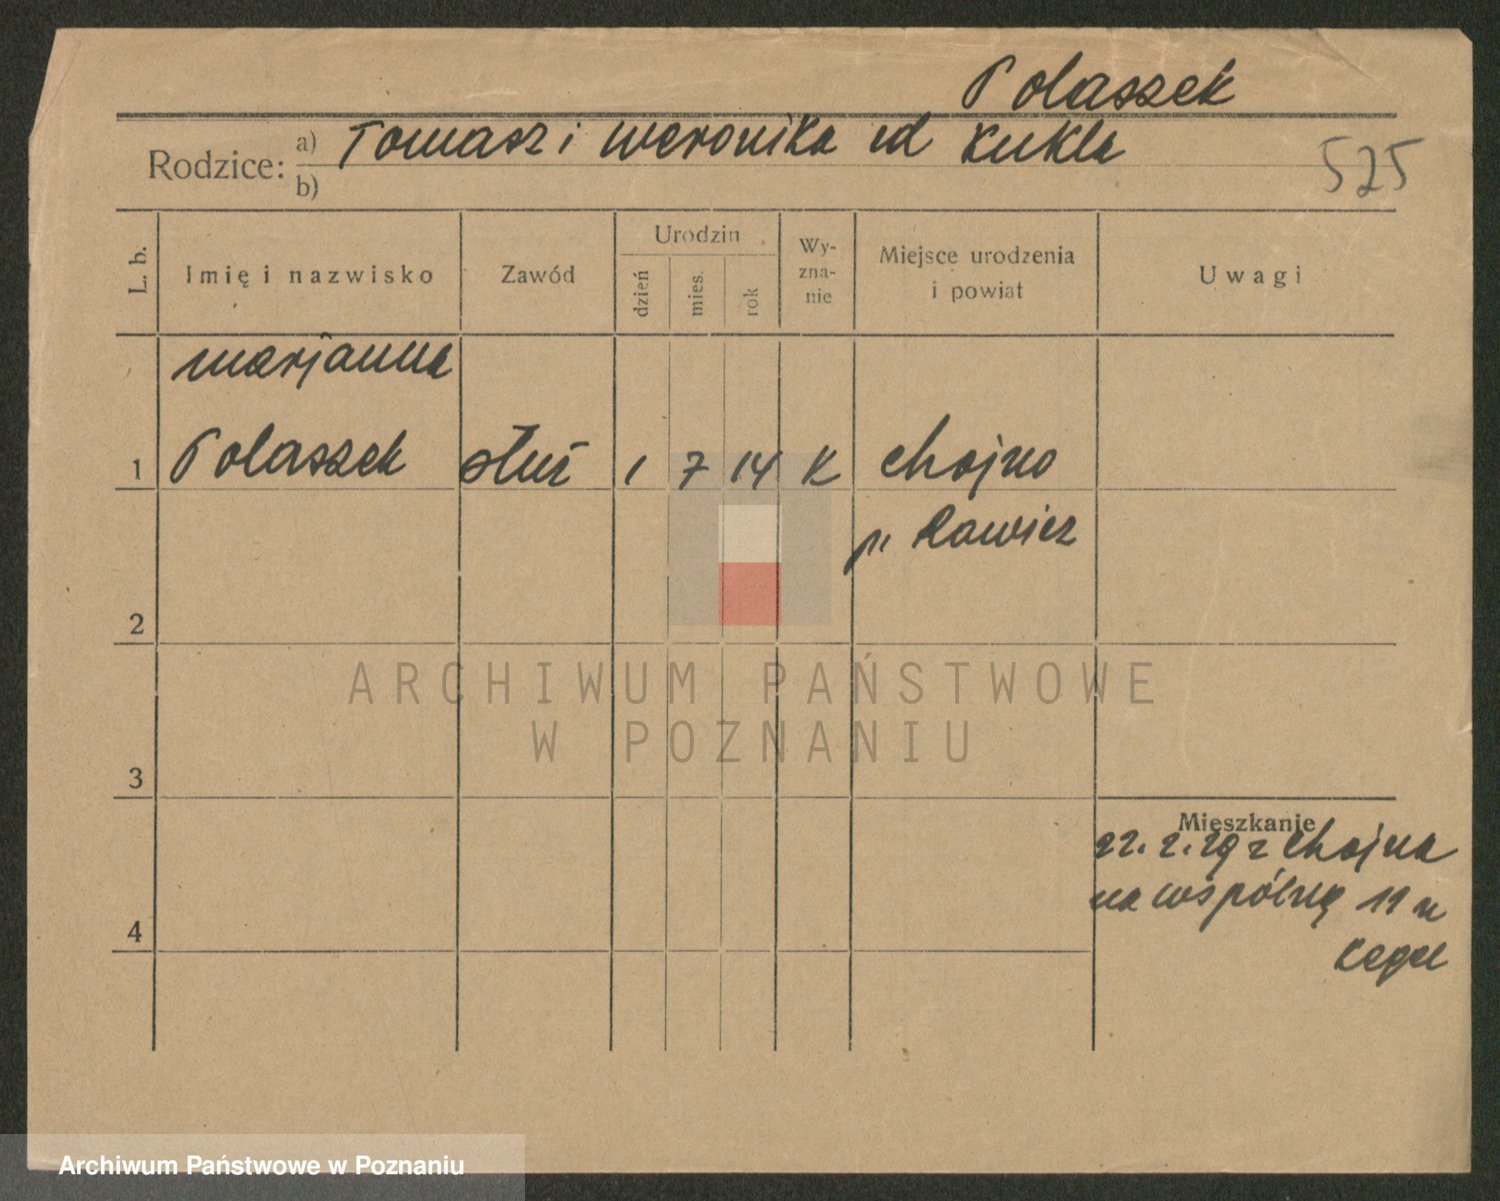 Polaszek
Rodzice: a) Tomasz i Weronika zd Kukla
b)
525
L. b.
Imię i nazwisko
Zawód
Urodzin
dzień
mies.
rok
Wy-
zna-
nie
Miejsce urodzenia
i powiat
Uwagi
Marjanna
1 Polaszek służ 1 7 14 K Chojno
p. Rawicz
2
3
4
Mieszkanie
22. 2. 29 z Chojna
na wspólną 11 u
ARCHIWUM PAŃSTWOWE
W POZNANIU
Archiwum Państwowe w Poznaniu